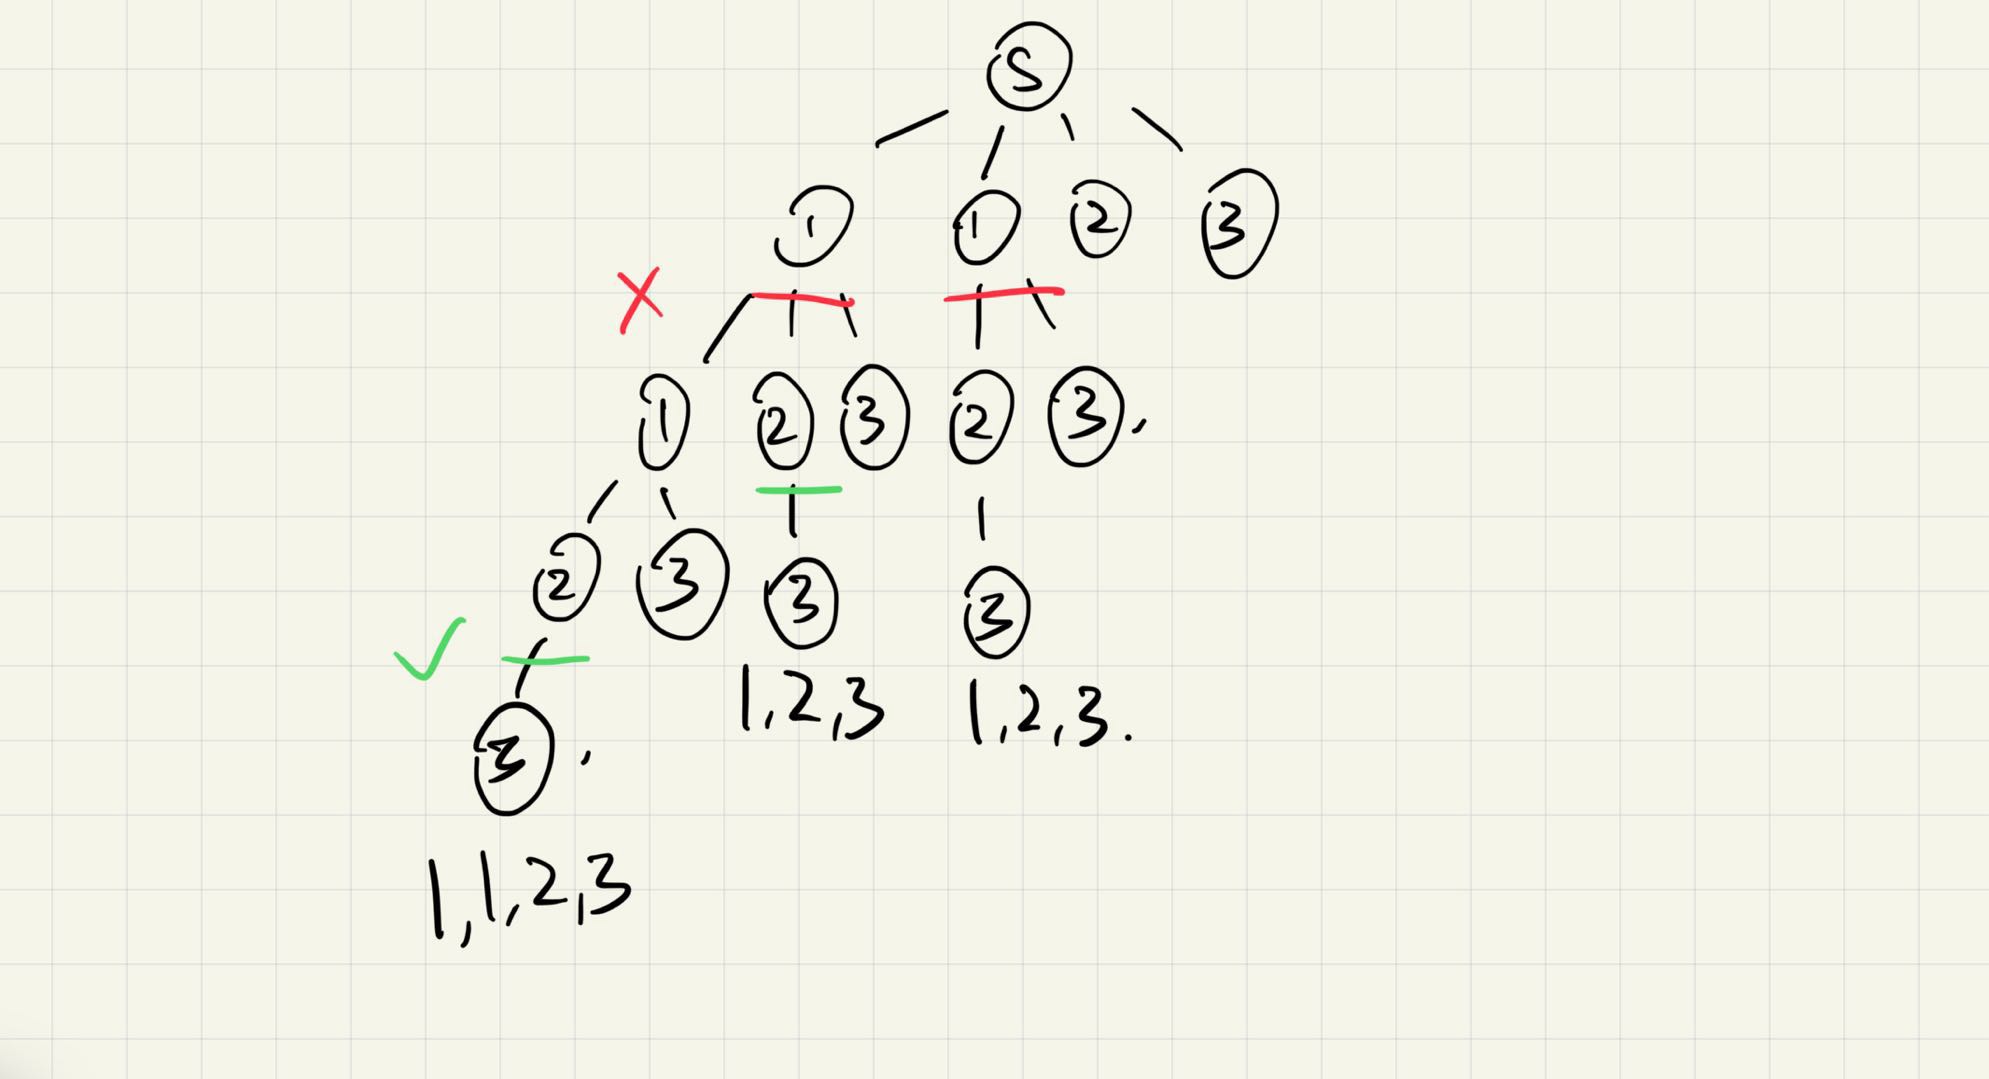 S
1 1 2 3
1 2 3 2 3,
2 3 3 3
1,2,3 1,2,3.
3,
1,1,2,3